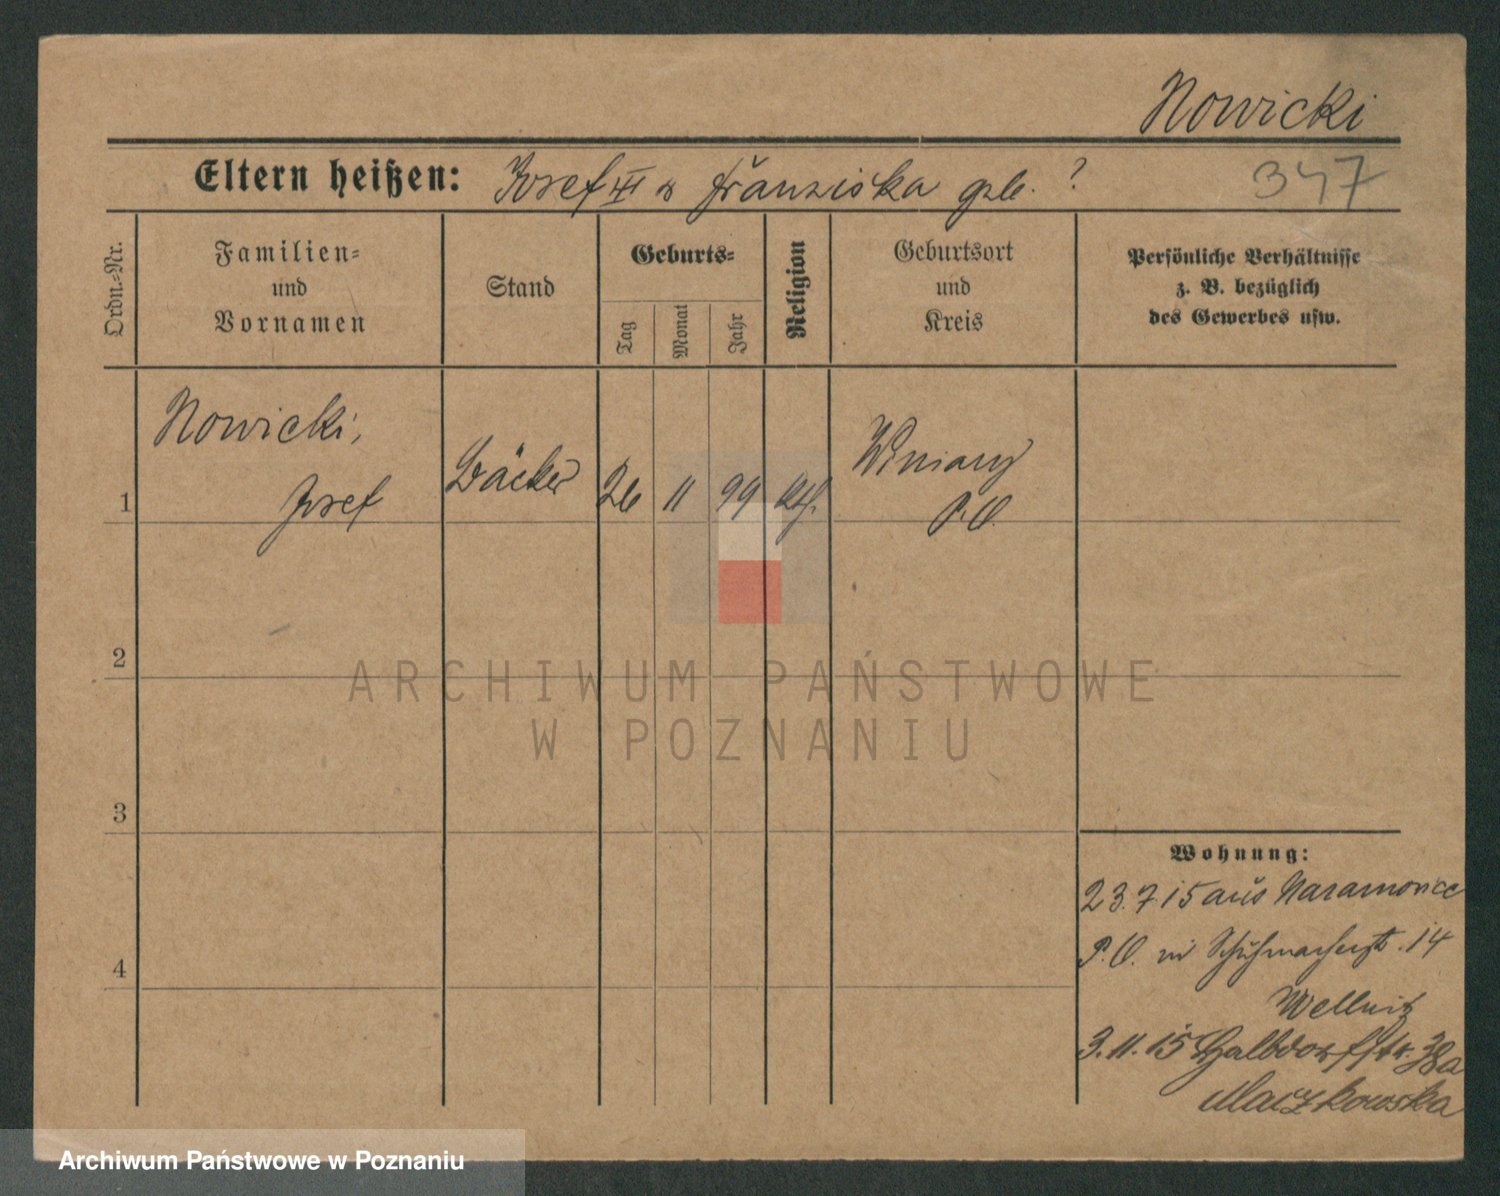 Nowicki
Eltern heißen: Josef III u Franziska geb. ?
347
Ordn.-Nr.
Familien-
und
Vornamen
Stand
Geburts-
Tag
Monat
Jahr
Religion
Geburtsort
und
Kreis
Persönliche Verhältnisse
z. B. bezüglich
des Gewerbes usw.
1
Nowicki,
Josef
Bäcker
26
11
99
kath.
Winiary
P. O.
2
ARCHIWUM PAŃSTWOWE
W POZNANIU
3
4
Wohnung:
23.7.15 aus Naramowice
P. O. in Schuhmacherstr. 14
Wellnitz
3.11.15 Halbdorfstr. 38a
Maczkowska
Archiwum Państwowe w Poznaniu